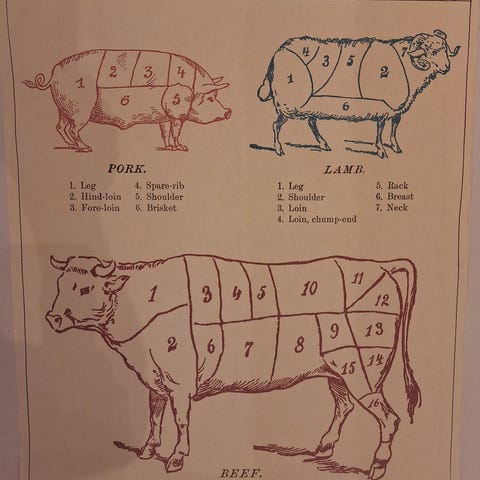 1 2 3 4 5 6
4 3 5 2 7 1 6
PORK.
1. Leg 4. Spare-rib
2. Hind-loin 5. Shoulder
3. Fore-loin 6. Brisket
LAMB.
1. Leg 5. Rack
2. Shoulder 6. Breast
3. Loin 7. Neck
4. Loin, chump-end
1 3 4 5 10 11 12
2 6 7 8 9 13
15 14
16
BEEF.